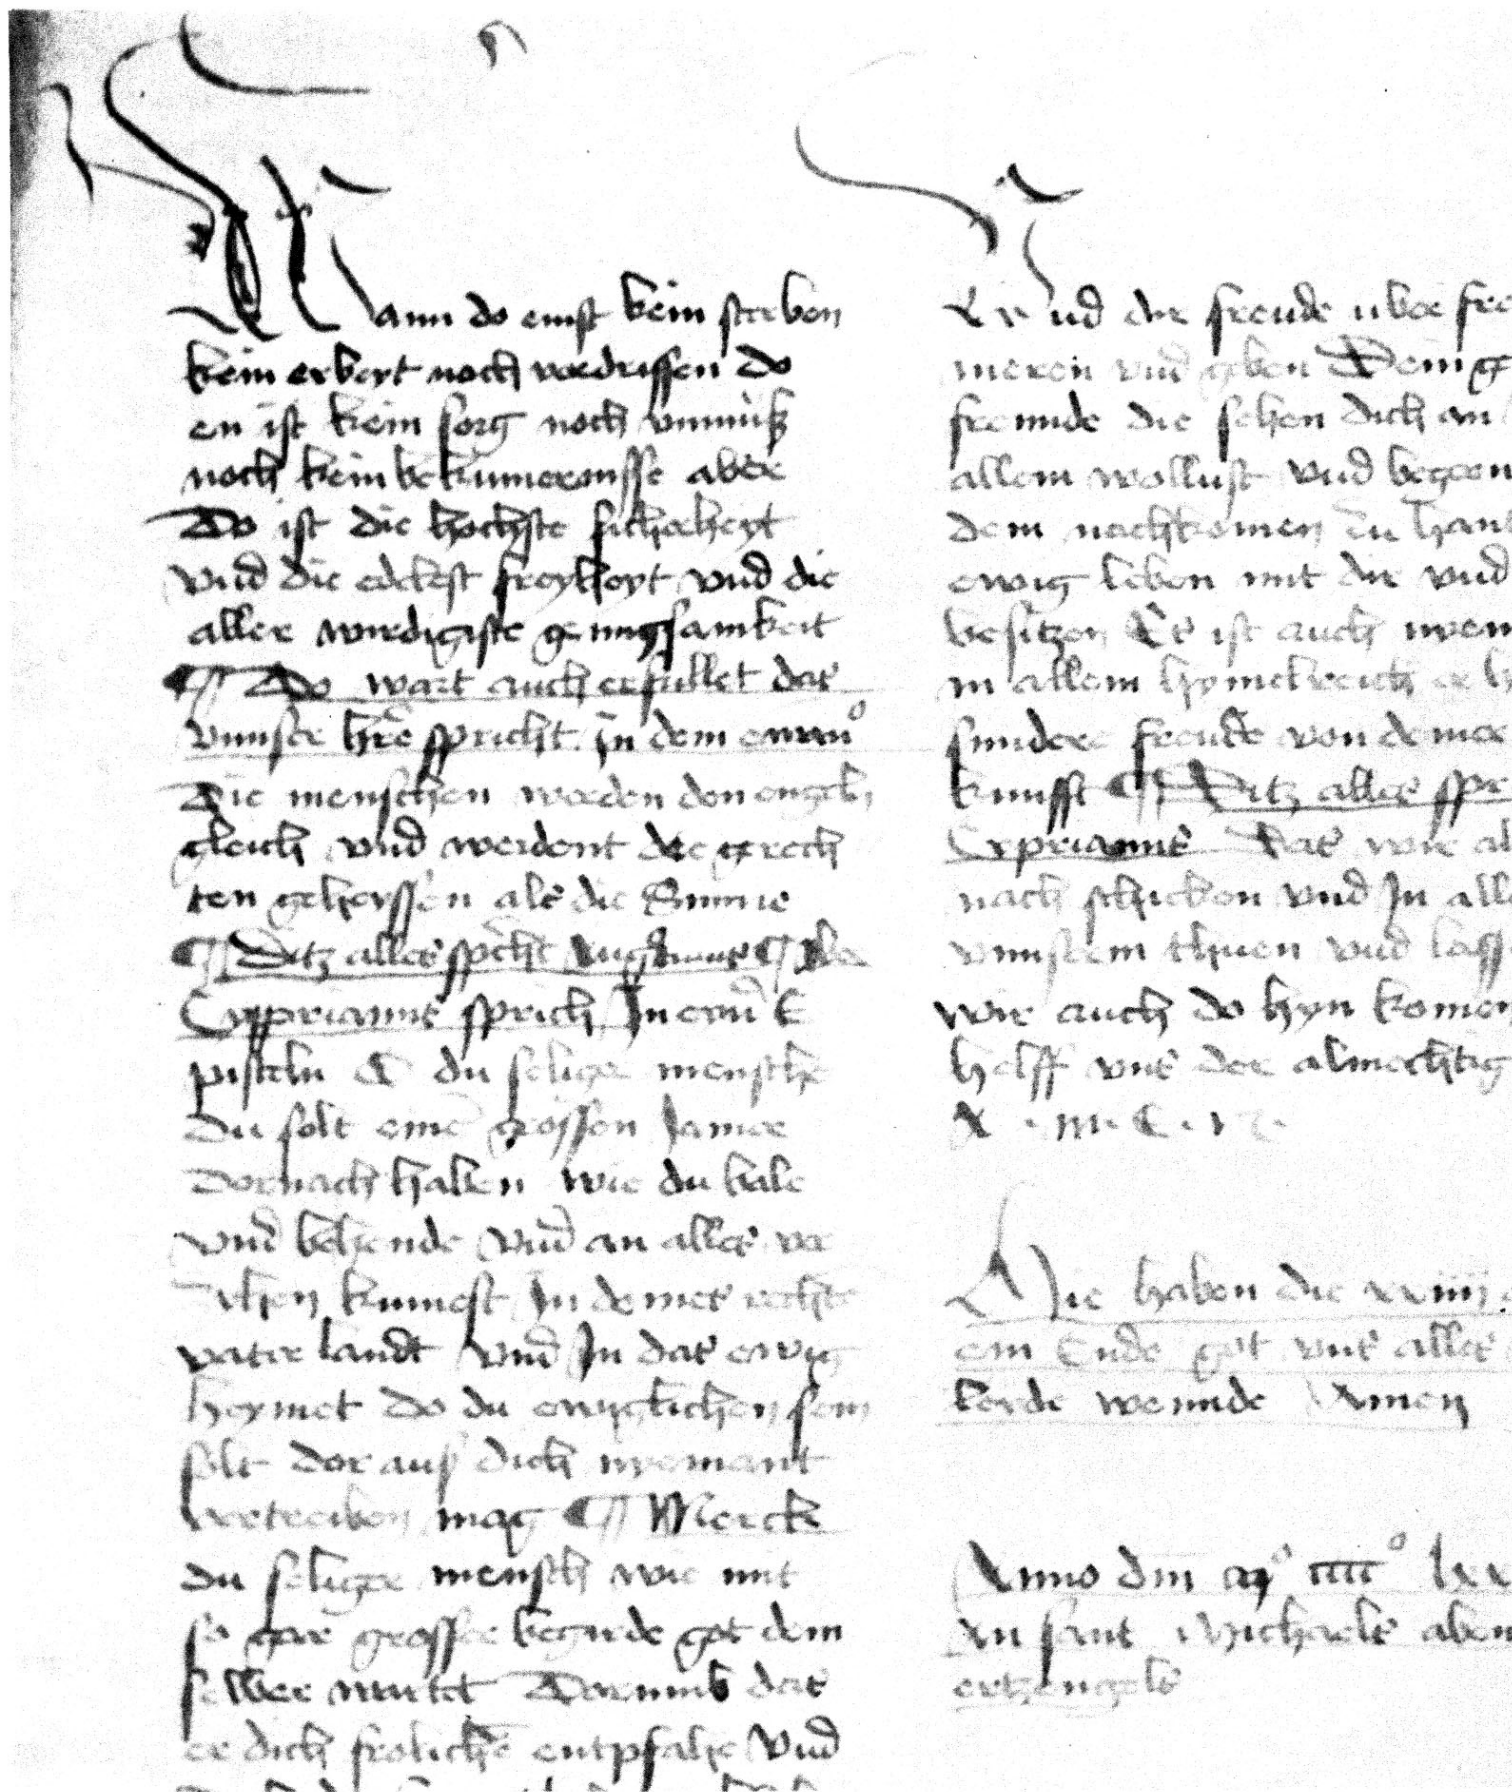 Wann do enist kein sterben
kein erbeyt noch verdrissen do
en ist kein sorg noch vnmuß
noch kein bekumernisse aber
Do ist die hochste sicherheyt
vnd die edelest freyheyt vnd die
aller wirdigiste genugsamkeit
¶ Do wart auch erfullet das
vnnser hre spricht In dem
Die menschen werden den engeln
gleich vnd werdent die gerech
ten geheyssen als die Sunne
¶ Ditz alles spicht Augustinus ¶
Cypprianus sprich In eynr E
pisteln O du seliger mensche
Du solt eine grossen Jamer
Dornach haben wie du bale
vnd behende vnd an alles ver
zihen kumest In deines rechte
vater landt vnd In das ewig
heymet do du ewiglichen sein
solt dor auß dich nyemant
vertreiben mag ¶ Merck
du seliger mensch wie mit
so gar grosser begirde got dein
selber wartet Dorumb das
er dich frolichen entpfahe vnd
vnd dir freude uber fre
meren vnd geben Dein g
freunde die sehen dich an
allem wollust vnd begern
dem nachkomen zu hant
ewig leben mit dir vnd
besitzen Es ist auch nyem
in allem hymelreich er h
sunder freude von deiner
kunfft ¶ Ditz alles spr
Cyprianus Das wir al
nach schicken vnd In alle
vnnserm thuen vnd lass
wir auch do hyn komen
helff vns der almechtig
A · m · E · n ·
Hie haben die xxiiij
ein Ende got vns alles
kerde wennde Amen
Anno dm m° cccc° lxx
An sant Michaels aben
ertzengels